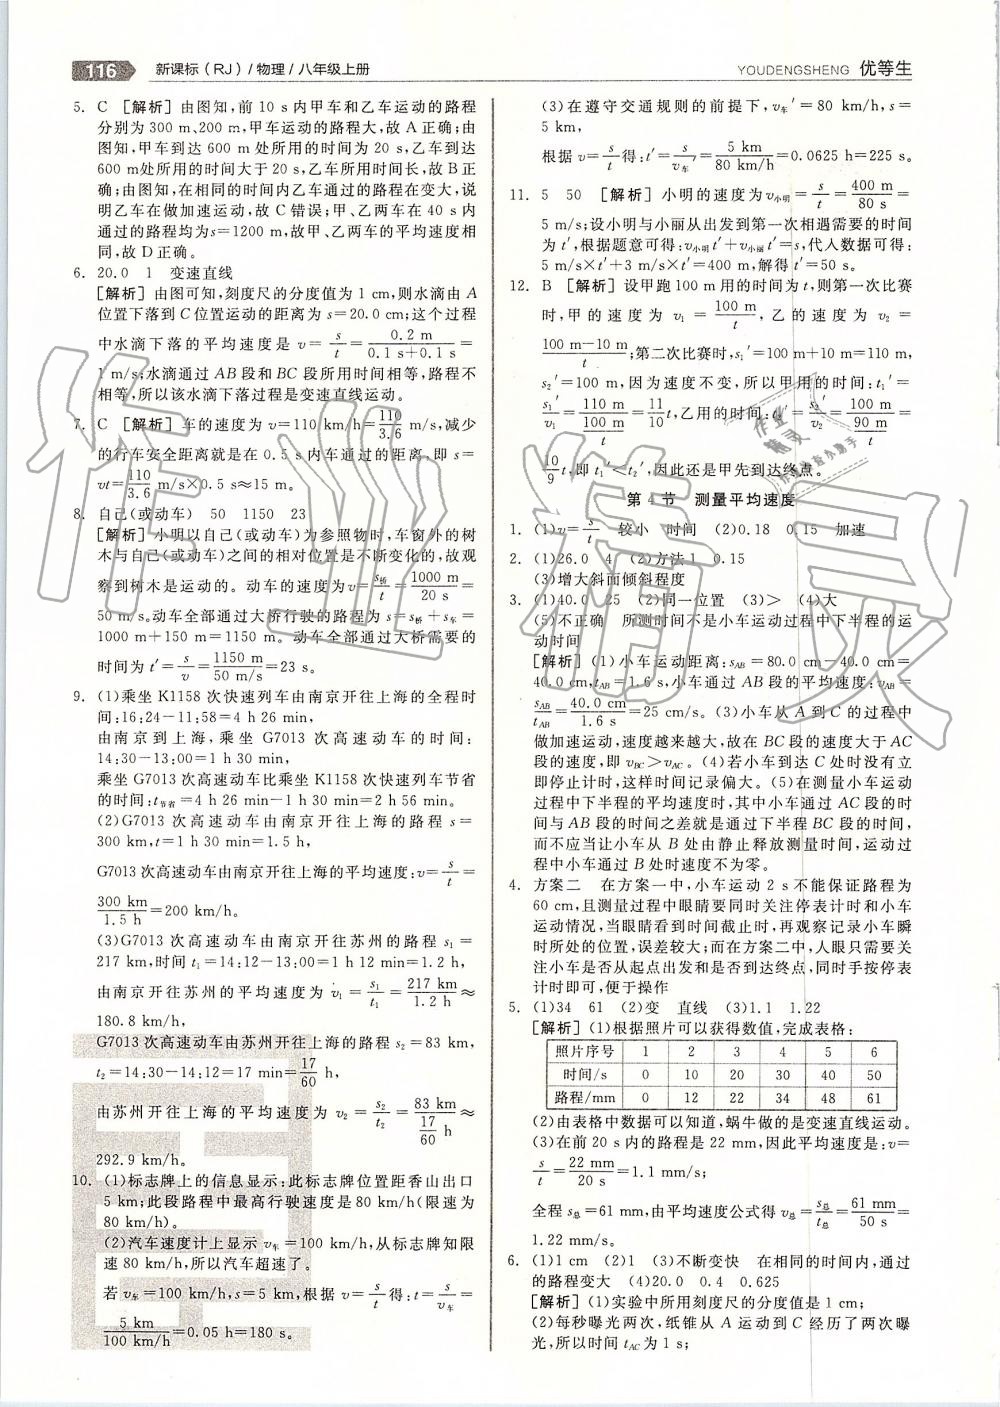 116 新课标(RJ)/物理/八年级上册
YOUDENGSHENG 优等生
5. C [解析]由图知,前10 s内甲车和乙车运动的路程
分别为300 m、200 m,甲车运动的路程大,故A正确;由
图知,甲车到达600 m处所用的时间为20 s,乙车到达
600 m处所用的时间大于20 s,乙车所用时间长,故B正
确;由图知,在相同的时间内乙车通过的路程在变大,说
明乙车在做加速运动,故C错误;甲、乙两车在40 s内
通过的路程均为s=1200 m,故甲、乙两车的平均速度相
同,故D正确。
6. 20.0 1 变速直线
[解析]由图可知,刻度尺的分度值为1 cm,则水滴由A
位置下落到C位置运动的距离为s=20.0 cm;这个过程
中水滴下落的平均速度是v=s/t=0.2 m/(0.1 s+0.1 s)=
1 m/s;水滴通过AB段和BC段所用时间相等,路程不
相等,所以该水滴下落过程是变速直线运动。
7. C [解析]车的速度为v=110 km/h=110/3.6 m/s,减少
的行车安全距离就是在0.5 s内车通过的距离,即s=
vt=110/3.6 m/s×0.5 s≈15 m。
8. 自己(或动车) 50 1150 23
[解析]小明以自己(或动车)为参照物时,车窗外的树
木与自己(或动车)之间的相对位置是不断变化的,故观
察到树木是运动的。动车的速度为v=s桥/t=1000 m/20 s=
50 m/s。动车全部通过大桥行驶的路程为s=s桥+s车=
1000 m+150 m=1150 m。动车全部通过大桥需要的
时间为t′=s/v=1150 m/50 m/s=23 s。
9. (1)乘坐K1158次快速列车由南京开往上海的全程时
间:16:24-11:58=4 h 26 min,
由南京到上海,乘坐G7013次高速动车的时间:
14:30-13:00=1 h 30 min,
乘坐G7013次高速动车比乘坐K1158次快速列车节省
的时间:t节省=4 h 26 min-1 h 30 min=2 h 56 min。
(2)G7013次高速动车由南京开往上海的路程s=
300 km,t=1 h 30 min=1.5 h,
G7013次高速动车由南京开往上海的平均速度:v=s/t=
300 km/1.5 h=200 km/h。
(3)G7013次高速动车由南京开往苏州的路程s₁=
217 km,时间t₁=14:12-13:00=1 h 12 min,
由南京开往苏州的平均速度为v₁=s₁/t₁=217 km/1.2 h≈
180.8 km/h,
G7013次高速动车由苏州开往上海的路程s₂=83 km,
t₂=14:30-14:12=17 min=17/60 h,
由苏州开往上海的平均速度为v₂=s₂/t₂=83 km/(17/60 h)≈
292.9 km/h。
10. (1)标志牌上的信息显示:此标志牌位置距香山出口
5 km;此段路程中最高行驶速度是80 km/h(限速为
80 km/h)。
(2)汽车速度计上显示v车=100 km/h,从标志牌知限
速80 km/h,所以汽车超速了。
若v车=100 km/h,s=5 km,根据v=s/t得:t=s/v车=
5 km/100 km/h=0.05 h=180 s。
(3)在遵守交通规则的前提下,v车′=80 km/h,s=
5 km,
根据v=s/t得:t′=s/v车′=5 km/80 km/h=0.0625 h=225 s。
11. 5 50 [解析]小明的速度为v小明=s/t=400 m/80 s=
5 m/s;设小明与小丽从出发到第一次相遇需要的时间
为t′,根据题意可得:v小明t′+v小丽t′=s,代人数据可得:
5 m/s×t′+3 m/s×t′=400 m,解得t′=50 s。
12. B [解析]设甲跑100 m用的时间为t,则第一次比赛
时,甲的速度为v₁=100 m/t,乙的速度为v₂=
(100 m-10 m)/t;第二次比赛时,s₁′=100 m+10 m=110 m,
s₂′=100 m,因为速度不变,所以甲用的时间:t₁′=
s₁′/v₁=110 m/(100 m/t)=11/10 t,乙用的时间:t₂′=s₂′/v₂=100 m/(90 m/t)=
10/9 t,即t₁′<t₂′,因此还是甲先到达终点。
第4节 测量平均速度
1. (1)v=s/t 较小 时间 (2)0.18 0.15 加速
2. (1)26.0 4 (2)方法1 0.15
(3)增大斜面倾斜程度
3. (1)40.0 25 (2)同一位置 (3)> (4)大
(5)不正确 所测时间不是小车运动过程中下半程的运
动时间
[解析](1)小车运动距离:sAB=80.0 cm-40.0 cm=
40.0 cm,tAB=1.6 s,小车通过AB段的平均速度:vAB=
sAB/tAB=40.0 cm/1.6 s=25 cm/s。(3)小车从A到C的过程中
做加速运动,速度越来越大,故在BC段的速度大于AC
段的速度,即vBC>vAC。(4)若小车到达C处时没有立
即停止计时,这样时间记录偏大。(5)在测量小车运动
过程中下半程的平均速度时,其中小车通过AC段的时
间与AB段的时间之差就是通过下半程BC段的时间,
而不应当让小车从B处由静止释放测量时间,运动过
程中小车通过B处时速度不为零。
4. 方案二 在方案一中,小车运动2 s不能保证路程为
60 cm,且测量过程中眼睛要同时关注停表计时和小车
运动情况,当眼睛看到时间截止时,再观察记录小车瞬
时所处的位置,误差较大;而在方案二中,人眼只需要关
注小车是否从起点出发和是否到达终点,同时手按停表
计时即可,便于操作
5. (1)34 61 (2)变 直线 (3)1.1 1.22
[解析](1)根据照片可以获得数值,完成表格:
照片序号 1 2 3 4 5 6
时间/s 0 10 20 30 40 50
路程/mm 0 12 22 34 48 61
(2)由表格中数据可以知道,蜗牛做的是变速直线运动。
(3)在前20 s内的路程是22 mm,因此平均速度是:v=
s/t=22 mm/20 s=1.1 mm/s;
全程s总=61 mm,由平均速度公式得v总=s总/t总=61 mm/50 s=
1.22 mm/s。
6. (1)1 cm (2)1 (3)不断变快 在相同的时间内,通过
的路程变大 (4)20.0 0.4 0.625
[解析](1)实验中所用刻度尺的分度值是1 cm;
(2)每秒曝光两次,纸锥从A运动到C经历了两次曝
光,所以时间tAC为1 s;
作业精灵